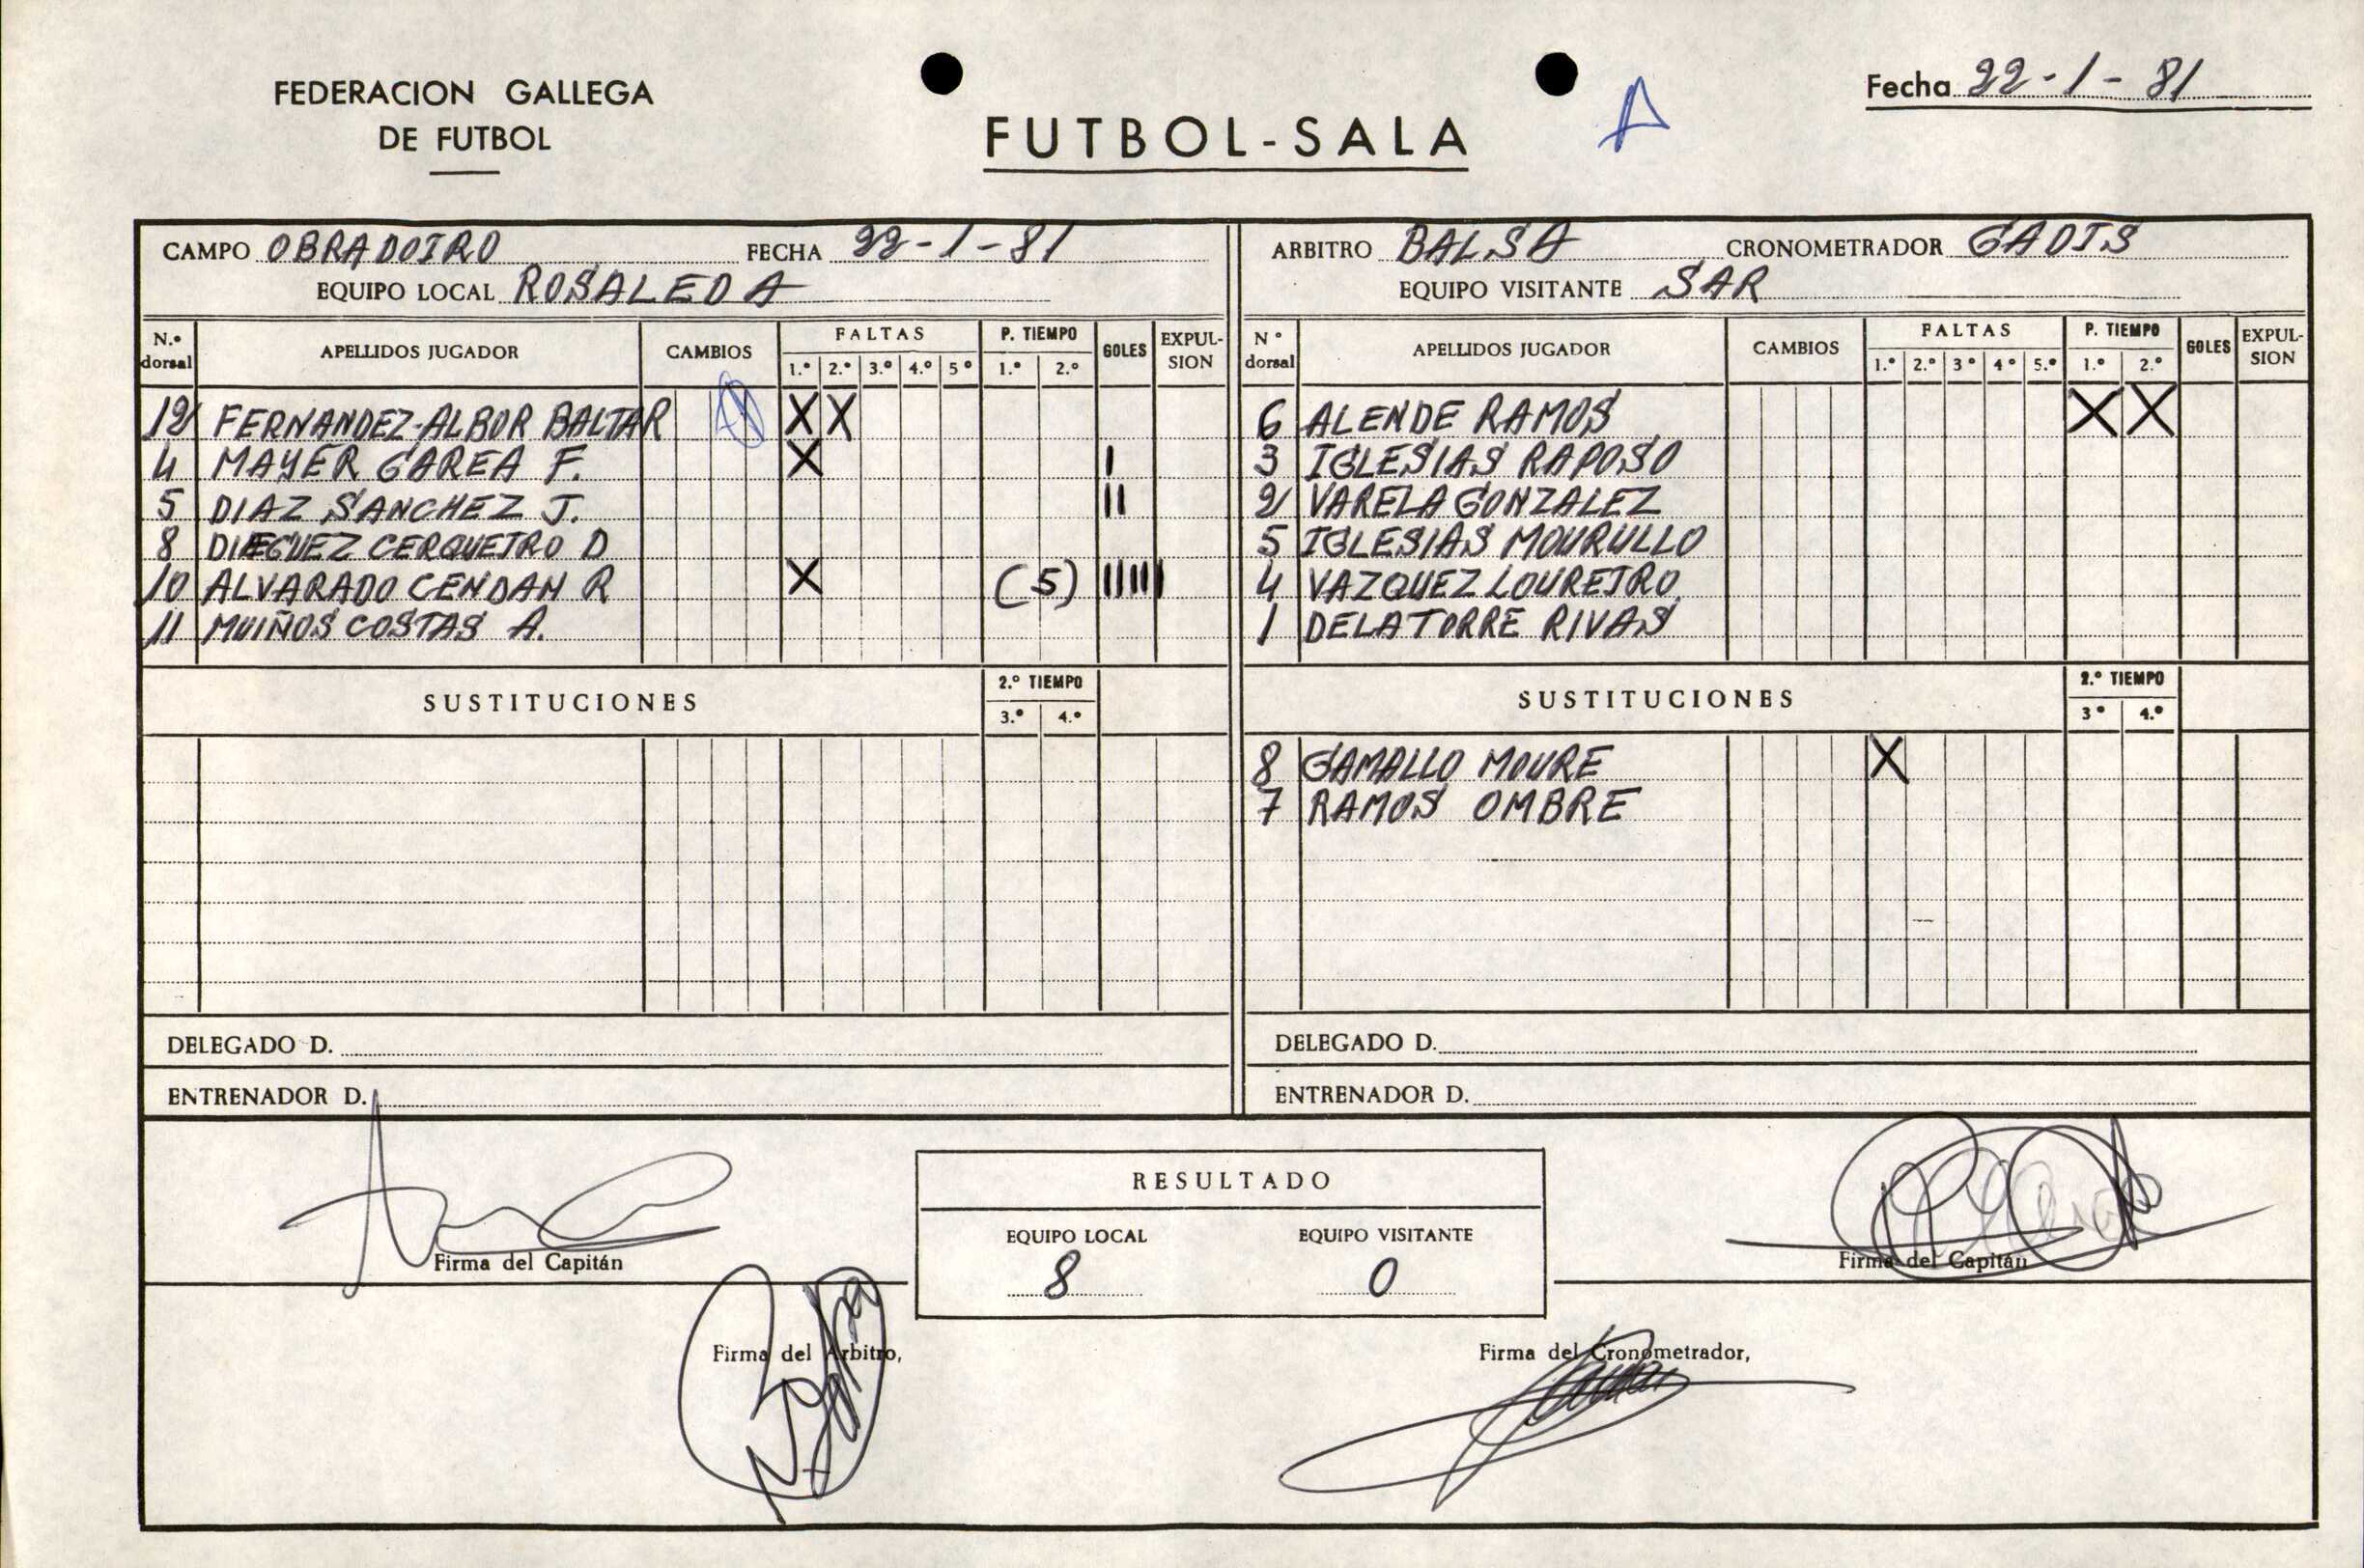 FEDERACION GALLEGA
DE FUTBOL
FUTBOL-SALA
A
Fecha 22-1-81
CAMPO OBRADOIRO FECHA 22-1-81
EQUIPO LOCAL ROSALEDA
N.º dorsal APELLIDOS JUGADOR CAMBIOS FALTAS 1.º 2.º 3.º 4.º 5º P. TIEMPO 1.º 2.º GOLES EXPULSION
12 FERNANDEZ-ALBOR BALTAR X X
4 MAYER GAREA F. X I
5 DIAZ SANCHEZ J. II
8 DIEGUEZ CERQUEIRO D
10 ALVARADO CENDAN R X (5) IIIII
11 MUIÑOS COSTAS A.
SUSTITUCIONES 2.º TIEMPO 3.º 4.º
DELEGADO D.
ENTRENADOR D.
ARBITRO BALSA CRONOMETRADOR GADIS
EQUIPO VISITANTE SAR
Nº dorsal APELLIDOS JUGADOR CAMBIOS FALTAS 1.º 2.º 3º 4º 5.º P. TIEMPO 1.º 2.º GOLES EXPULSION
6 ALENDE RAMOS X X
3 IGLESIAS RAPOSO
2 VARELA GONZALEZ
5 IGLESIAS MOURULLO
4 VAZQUEZ LOUREIRO
1 DELATORRE RIVAS
SUSTITUCIONES 2.º TIEMPO 3º 4.º
8 GAMALLO MOURE X
7 RAMOS OMBRE
DELEGADO D.
ENTRENADOR D.
Firma del Capitán
RESULTADO
EQUIPO LOCAL EQUIPO VISITANTE
8 0
Firma del Capitán
Firma del Arbitro,
Firma del Cronometrador,